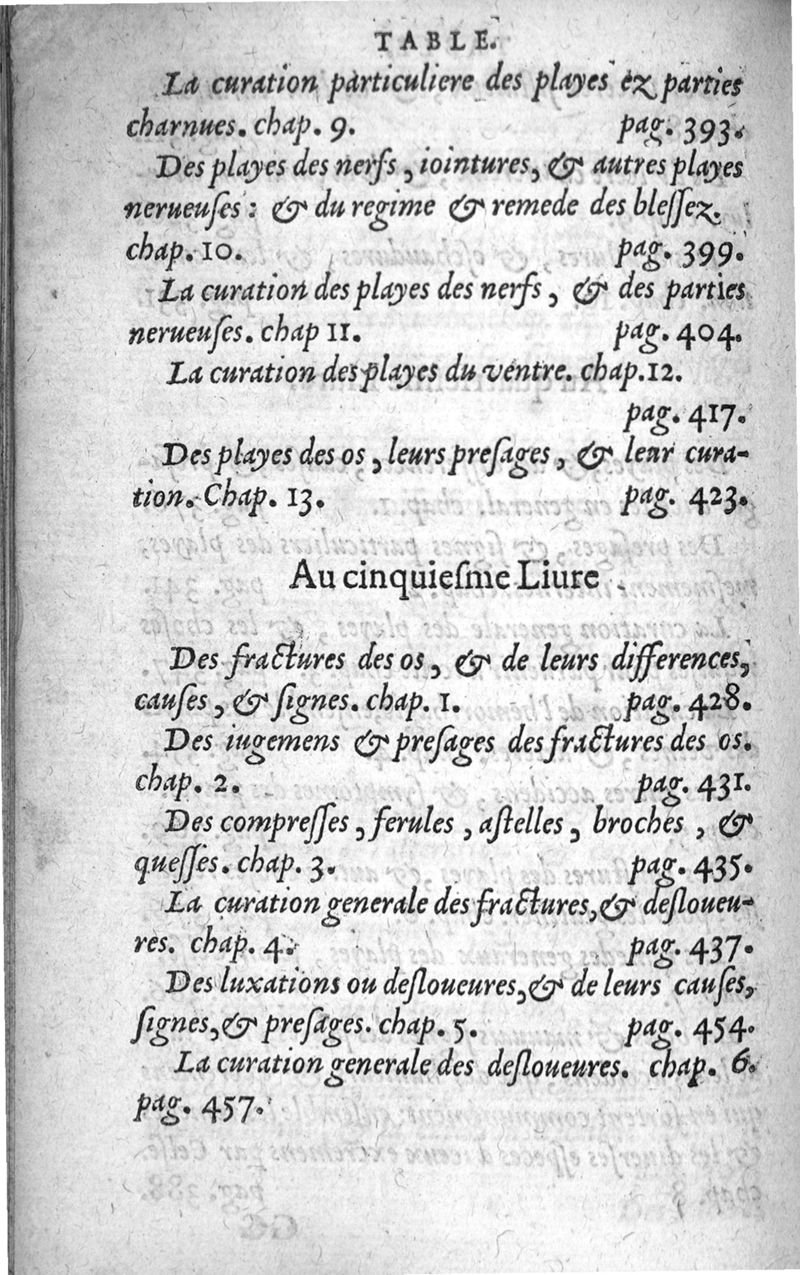 TABLE.
La curation particuliere des playes éz parties
charnues. chap. 9. pag. 393.
Des playes des nerfs, iointures, & autres playes
nerueuſes: & du regime & remede des bleſſez.
chap. 10. pag. 399.
La curation des playes des nerfs, & des parties
nerueuſes. chap 11. pag. 404.
La curation des playes du ventre. chap. 12.
pag. 417.
Des playes des os, leurs preſages, & leur cura-
tion. Chap. 13. pag. 423.
Au cinquieſme Liure.
Des fractures des os, & de leurs differences,
cauſes, & ſignes. chap. 1. pag. 428.
Des iugemens & preſages des fractures des os.
chap. 2. pag. 431.
Des compreſſes, ferules, aſtelles, broches, &
queſſes. chap. 3. pag. 435.
La curation generale des fractures, & deſloueu-
res. chap. 4. pag. 437.
Des luxations ou deſloueures, & de leurs cauſes,
ſignes, & preſages. chap. 5. pag. 454.
La curation generale des deſloueures. chap. 6.
pag. 457.